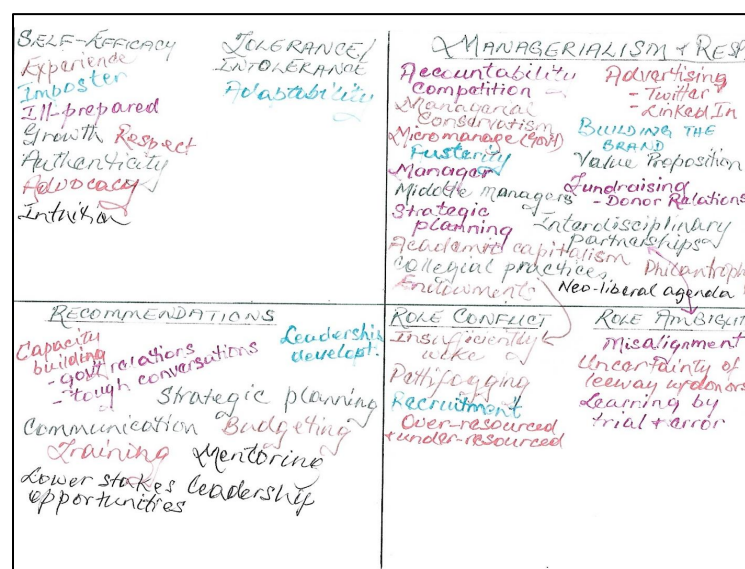 SELF-EFFICACY
Experience
Imposter
Ill-prepared
Growth Respect
Authenticity
Advocacy
Intuition
TOLERANCE/
INTOLERANCE
Adaptability
MANAGERIALISM + RESP
Accountability
Competition
Managerial
Conservatism
Micromanage (Gov't)
Fusterity
Manager
Middle managers
Strategic
planning
Academic capitalism
Collegial practices
Endowments
Advertising
- Twitter
- LinkedIn
BUILDING THE
BRAND
Value Proposition
Fundraising
- Donor Relations
Interdisciplinary
partnerships
Philanthroph
Neo-liberal agenda
RECOMMENDATIONS
Capacity
building
- gov't relations
- tough conversations
Leadership
develop't.
Strategic planning
Communication Budgeting
Training Mentoring
Lower stakes leadership
opportunities
ROLE CONFLICT
Insufficiently
woke
Pettifogging
Recruitment
Over-resourced
+ under-resourced
ROLE AMBIGUIT
Misalignment
Uncertainty of
leeway w/donors
Learning by
trial + error